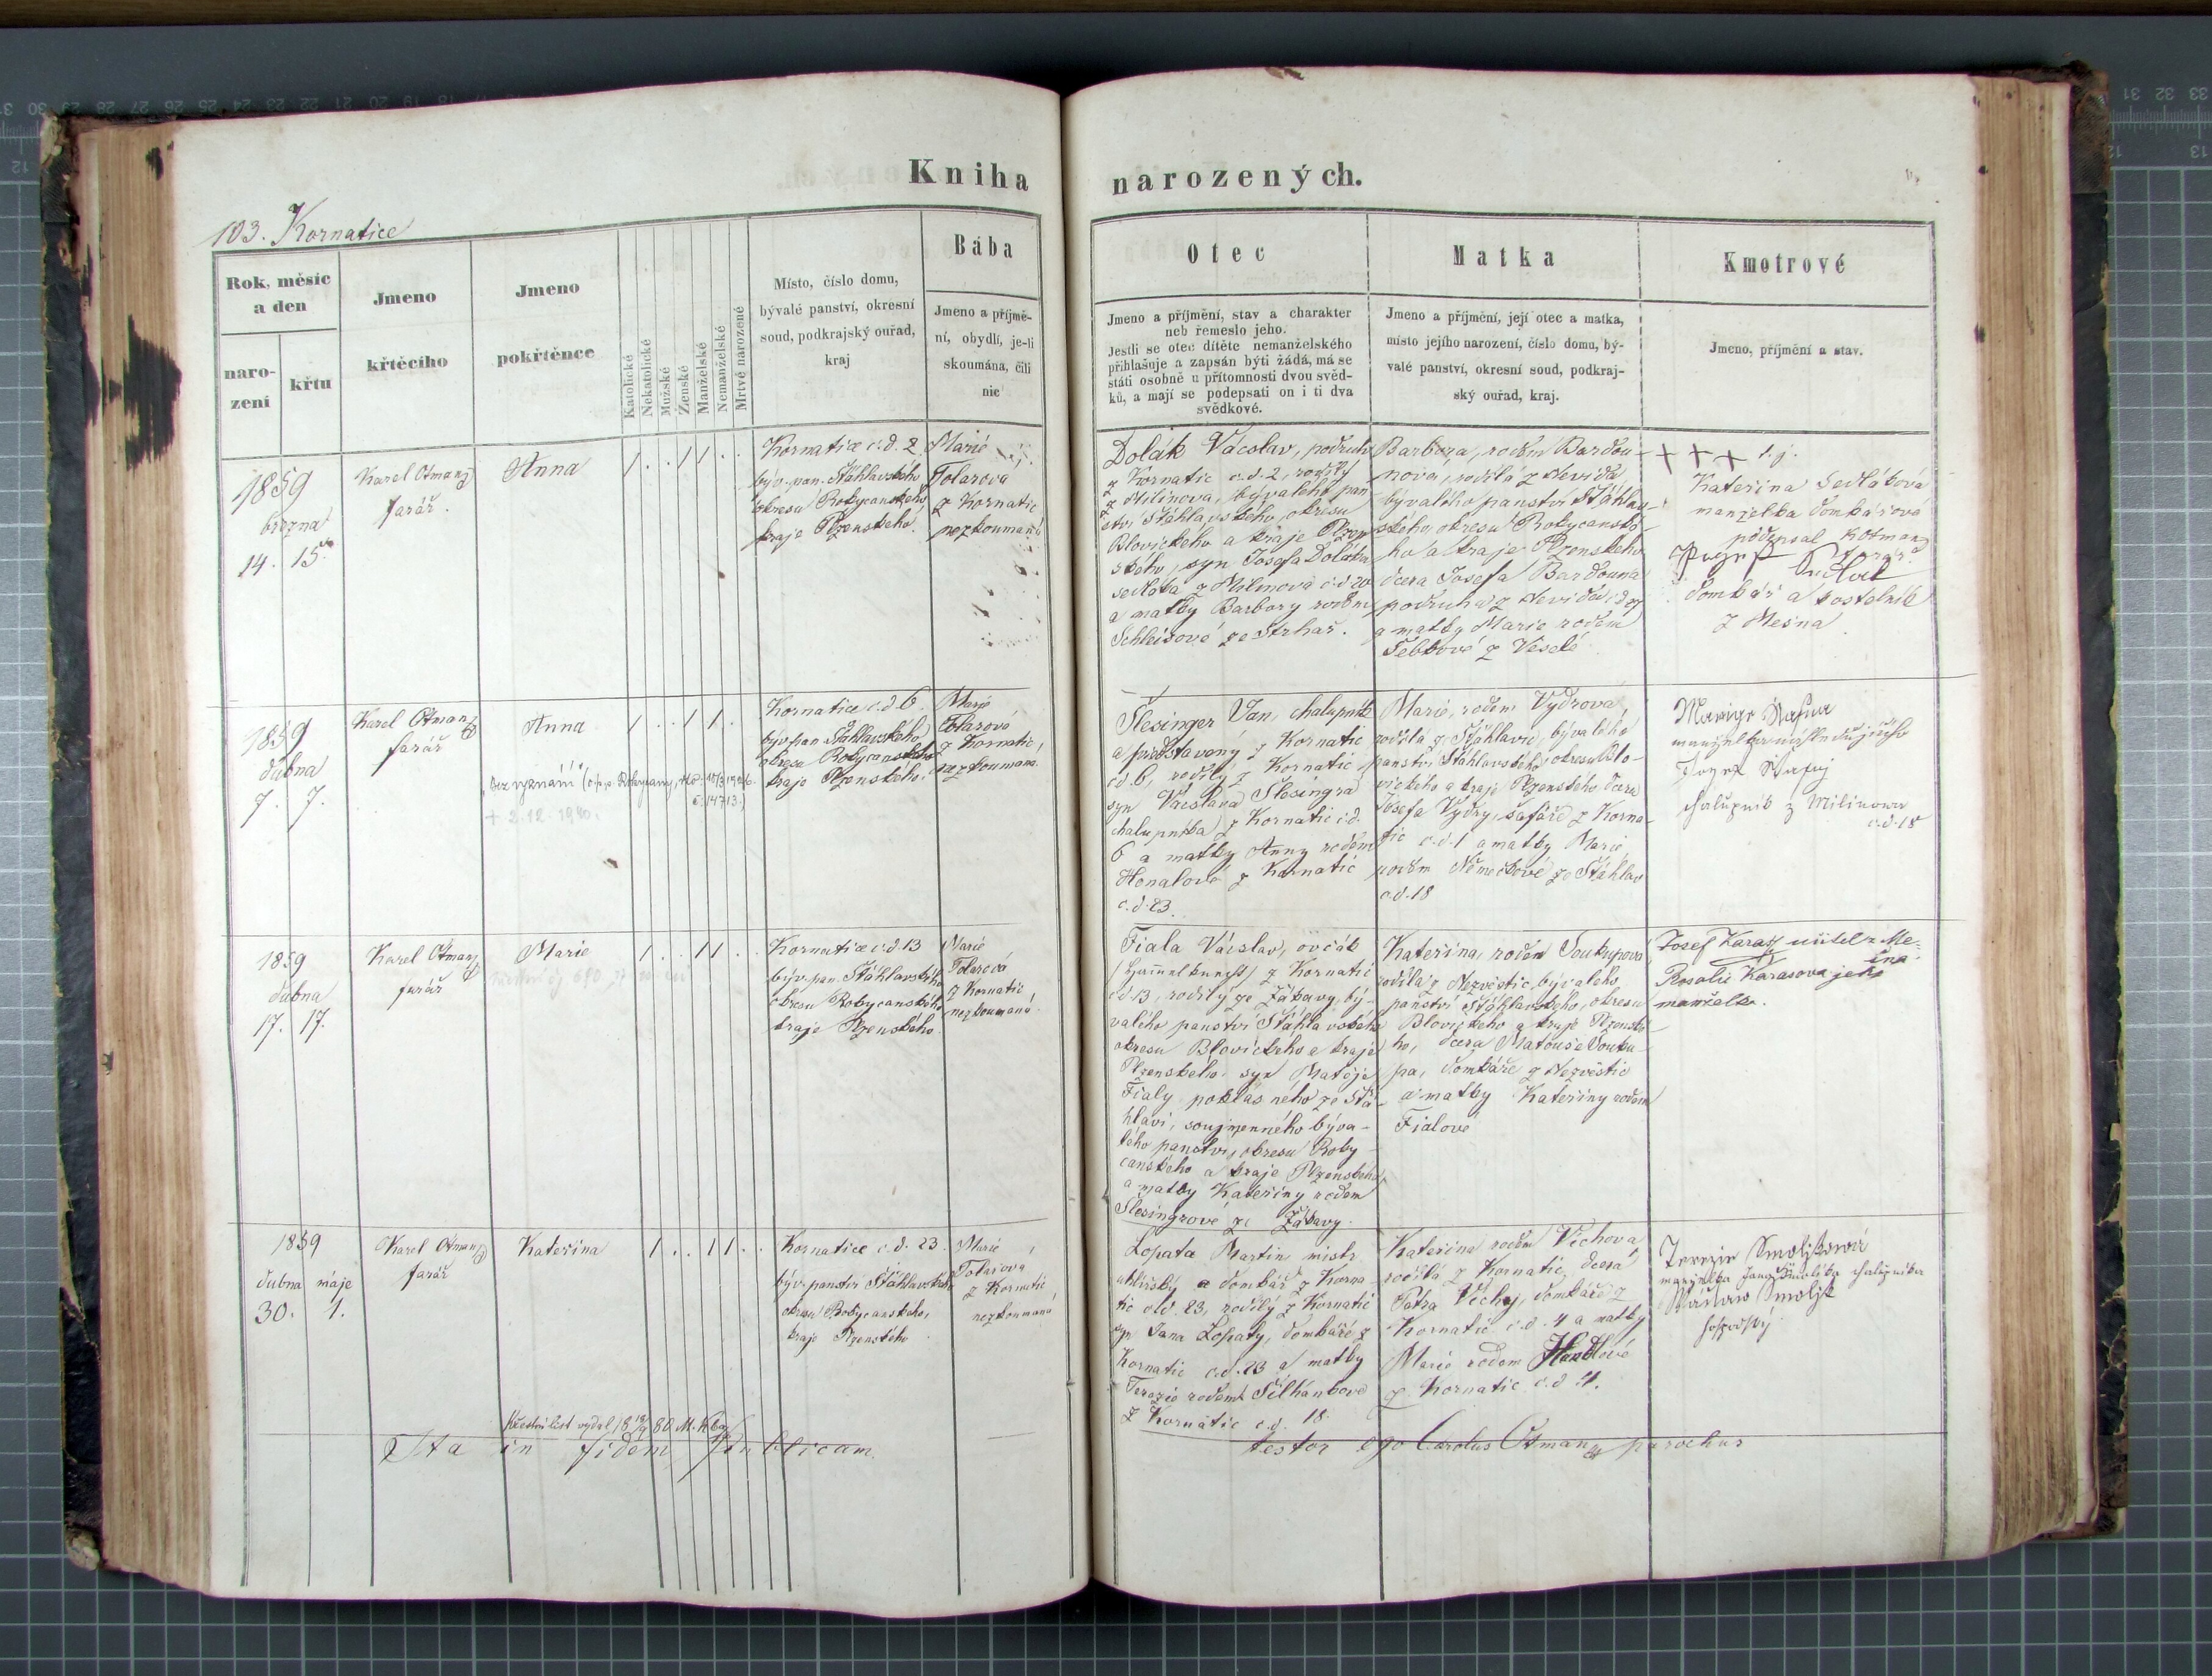 Kniha narozených.
103. Kornatice
Rok, měsíc
a den
naro-
zení
křtu
Jmeno
křtěcího
Jmeno
pokřtěnce
Katolické
Nekatolické
Mužské
Ženské
Manželské
Nemanželské
Mrtvě narozené
Místo, číslo domu,
bývalé panství, okresní
soud, podkrajský ouřad,
kraj
Bába
Jmeno a příjmě-
ní, obydlí, je-li
skoumána, čili
nic
Otec
Jmeno a příjmění, stav a charakter
neb řemeslo jeho.
Jestli se otec dítěte nemanželského
přihlašuje a zapsán býti žádá, má se
státi osobně u přítomnosti dvou svěd-
ků, a mají se podepsati on i ti dva
svědkové.
Matka
Jmeno a příjmění, její otec a matka,
místo jejího narození, číslo domu, bý-
valé panství, okresní soud, podkraj-
ský ouřad, kraj.
Kmotrové
Jmeno, příjmění a stav.
1859
března
14. 15.
Karel Otmanz
farář.
Anna
Kornatice č.d. 2
býv. pan. Štáhlavského
okresu Rokycanského
kraje Plzenského.
Marie
Tolarova
z Kornatic
nezkoumaná
Dolák Václav, podruh
z Kornatic č.d. 2, rodilý
z Milinova, bývalého pan
ství Štáhlavského, okresu
Blovického a kraje Plzen
ského, syn Josefa Doláka
sedláka z Milinova č.d. 20
a matky Barbory rodem
Schleisové ze Strhař.
Barbora, rodem Bardou-
nová, rodilá z Nevida
bývalého panství Štáhlav-
ského, okresu Rokycanské-
ho a kraje Plzenského
dcera Josefa Bardouna
podruha z Nevida
a matky Marie rodem
Šebkové z Veselé
+ + + 1.j.
Kateřina Sedláková
manželka domkářová
podepsal KOtmanz
farář
Jozef Sedlak
domkář a kostelník
z Mešna
1859
dubna
7. 7.
Karel Otmanz
farář
Anna
"bez vyznání" (o.p.s. Rokycany,
č. 14713.)
+ 2.12.1940.
Kornatice č.d. 6.
býv. pan Štáhlavského
okresu Rokycanského
kraje Plzenského.
Marie
Tolarová
z Kornatic
nezkoumaná.
Šlesinger Jan, chalupník
a představený z Kornatic
čd 6, rodilý z Kornatic
syn Václava Šlesingra
chalupníka z Kornatic č.d.
6 a matky Anny rodem
Honalové z Kornatic
č.d. 23.
Marie, rodem Vydrova,
rodilá z Štáhlavic, bývalého
panství Štáhlavského, okresu Blo-
vického a kraje Plzenského dcera
Josefa Vydry, šafáře z Korna-
tic č.d. 1 a matky Marie
rodem Němečkové ze Štáhlav
č.d. 18
manzelka následujícího
Jozef
chalupník z Milinowa
č.d. 18
1859
dubna
17. 17.
Karel Otmanz
farář
Marie
Kornatice č.d. 13
býv. pan. Štáhlavského
okresu Rokycanského
kraje Plzenského.
Marie
Tolarová
z Kornatic
nezkoumaná.
Fiala Václav, ovčák
z Kornatic
č.d. 13, rodilý ze Žákavy, bý-
valého panství Štáhlavského
okresu Blovického a kraje
Plzenského. syn Matěje
Fialy poklasného ze Štá-
hlavi, soujmenného býva-
lého panství, okresu Roky-
canského a kraje Plzenského,
a matky Kateřiny rodem
Šlesingrové ze Žákavy.
Kateřina, rodem Soukupová,
rodilá z Nezvěstic, bývalého
panství Štáhlavského, okresu
Blovického a kraje Plzenské-
ho, dcera Matouše Souku-
pa, domkáře z Nezvěstic
a matky Kateřiny rodem
Fialové
Josef Karas učitel z Me-
šna
Rosalie Karasova jeho
manželka.
1859
dubna máje
30. 1.
Karel Otmanz
farář
Kateřina
Kornatice č.d. 23.
býv. panství Štáhlavského
okresu Rokycanského,
kraje Plzenského
Marie
Tolarova
z Kornatic
nezkoumaná
Lopata Martin mistr
uhlířský a domkář z Korna
tic č.d. 23, rodilý z Kornatic
syn Jana Lopaty, domkáře z
Kornatic č.d. 23 a matky
Terezie rodem Silhánkové
z Kornatic č.d. 18.
Kateřina rodem Víchova
rodilá z Kornatic, dcera
Petra Víchy, domkáře z
Kornatic č.d. 4 a matky
Marie rodem Handlové
z Kornatic č.d 4.
Terezie Smolikowa
manzelka Jana Smolika chalupnika
Wáclaw Smolik
hospodský
Křestní list vydal
Ita in fidem publicam.
testor ego Carolus Otmanz parochus